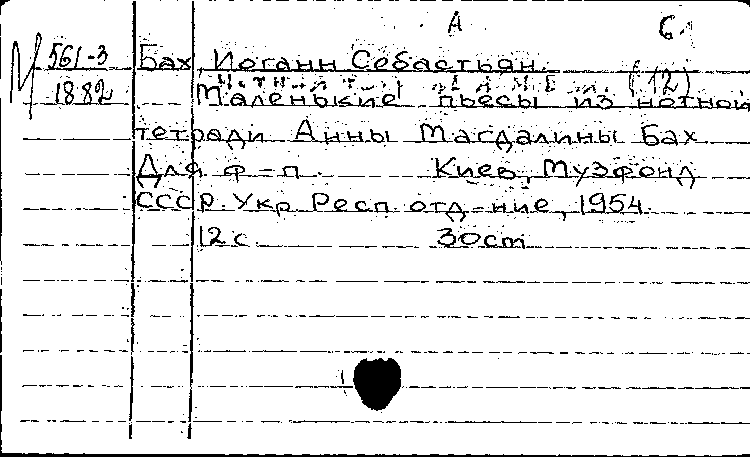 А
М 561-3
1882
Бах, Иоганн Себастьян.
(12)
Маленькие пьесы из нотной
тетради Анны Магдалины Бах.
Для ф-п. Киев, Музфонд
СССР. Укр. Респ. отд-ние, 1954.
12 с. 30 cm